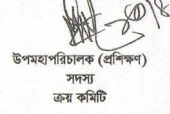 উপমহাপরিচালক (প্রশিক্ষণ)
সদস্য
ক্রয় কমিটি